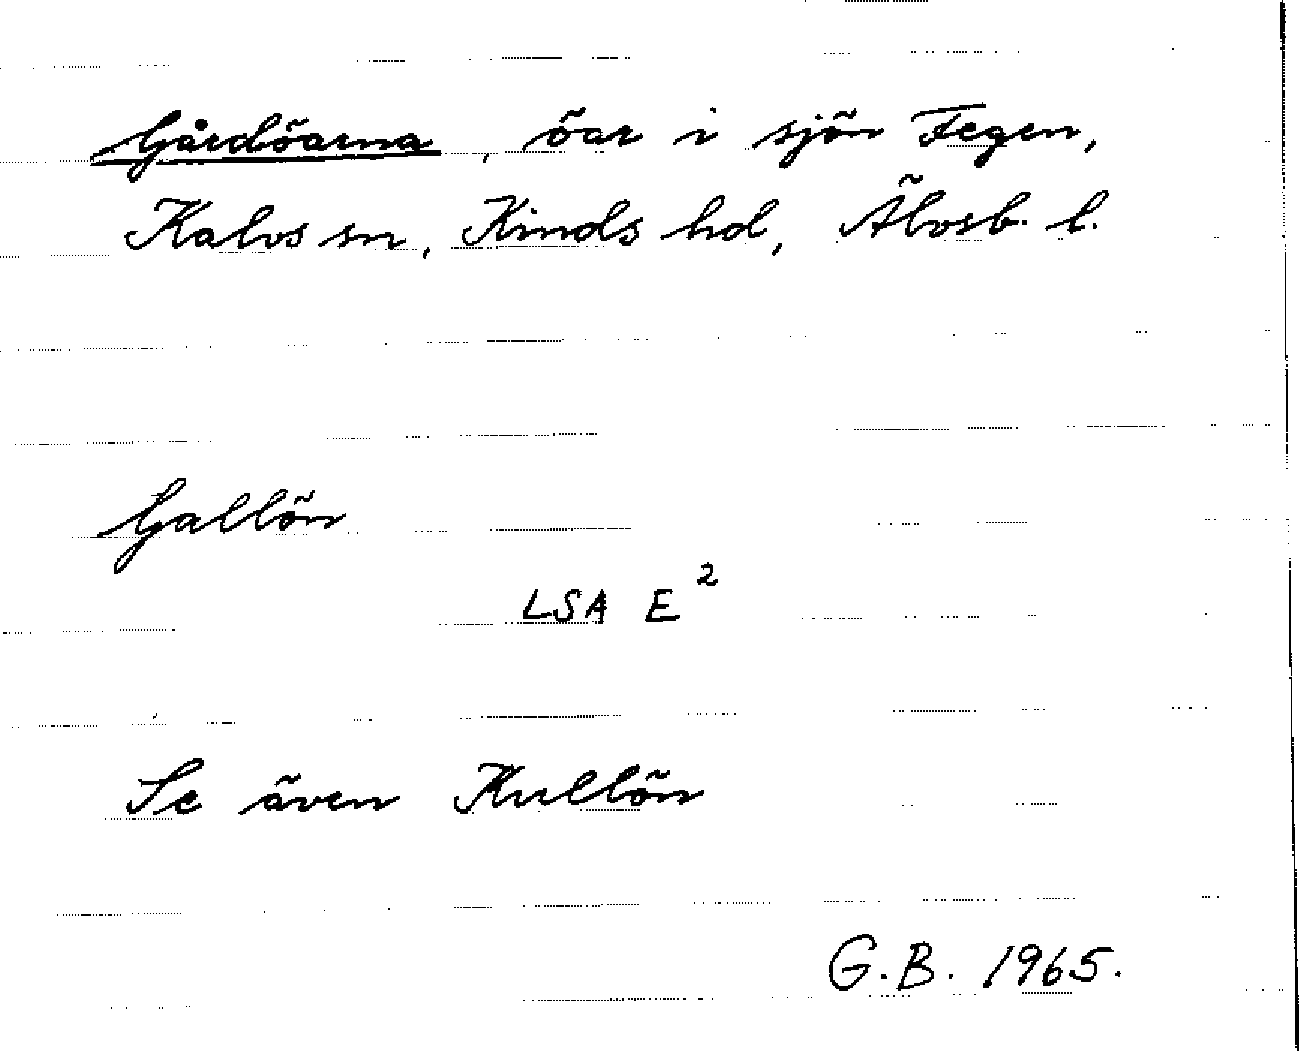 Gårdöarna, öar i sjön Fegen,
Kalvs sn, Kinds hd, Älvsb. l.
Gallön
LSA E²
Se även Kullön
G.B. 1965.